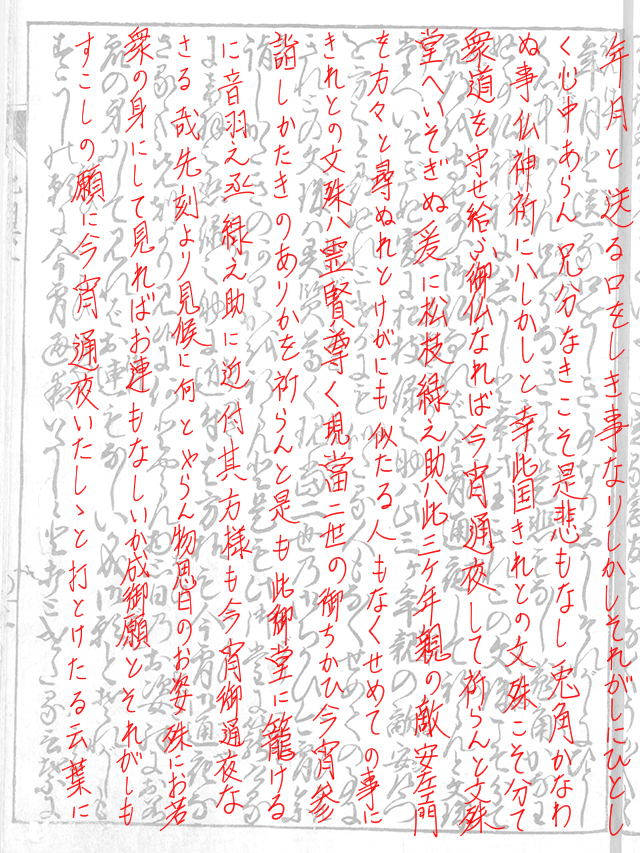 年月と送る口をしき事なりしかしそれがしにひとし
く心中あらん兄分なきこそ是悲もなし兎角かなわ
ぬ事仏神祈にハしかしと幸此国きれとの文殊こそ分て
衆道を守せ給ふ御仏なれば今宵通夜して祈らんと文殊
堂へいそぎぬ爰に松枝緑之助ハ此三ヶ年親の敵安左衛門
を方々と尋ぬれとけがにも似たる人もなくせめての事に
きれとの文殊ハ霊賢尊く現當二世の御ちかひ今宵参
詣しかたきのありかを祈らんと是も此御堂に籠ける
に音羽之丞緑之助に近付其方様も今宵御通夜な
さる哉先刻より見候に何とやらん物思日のお姿殊にお若
衆の身にして見ればお連もなしいか成御願とそれがしも
すこしの願に今宵通夜いたしゝと打とけたる云葉に